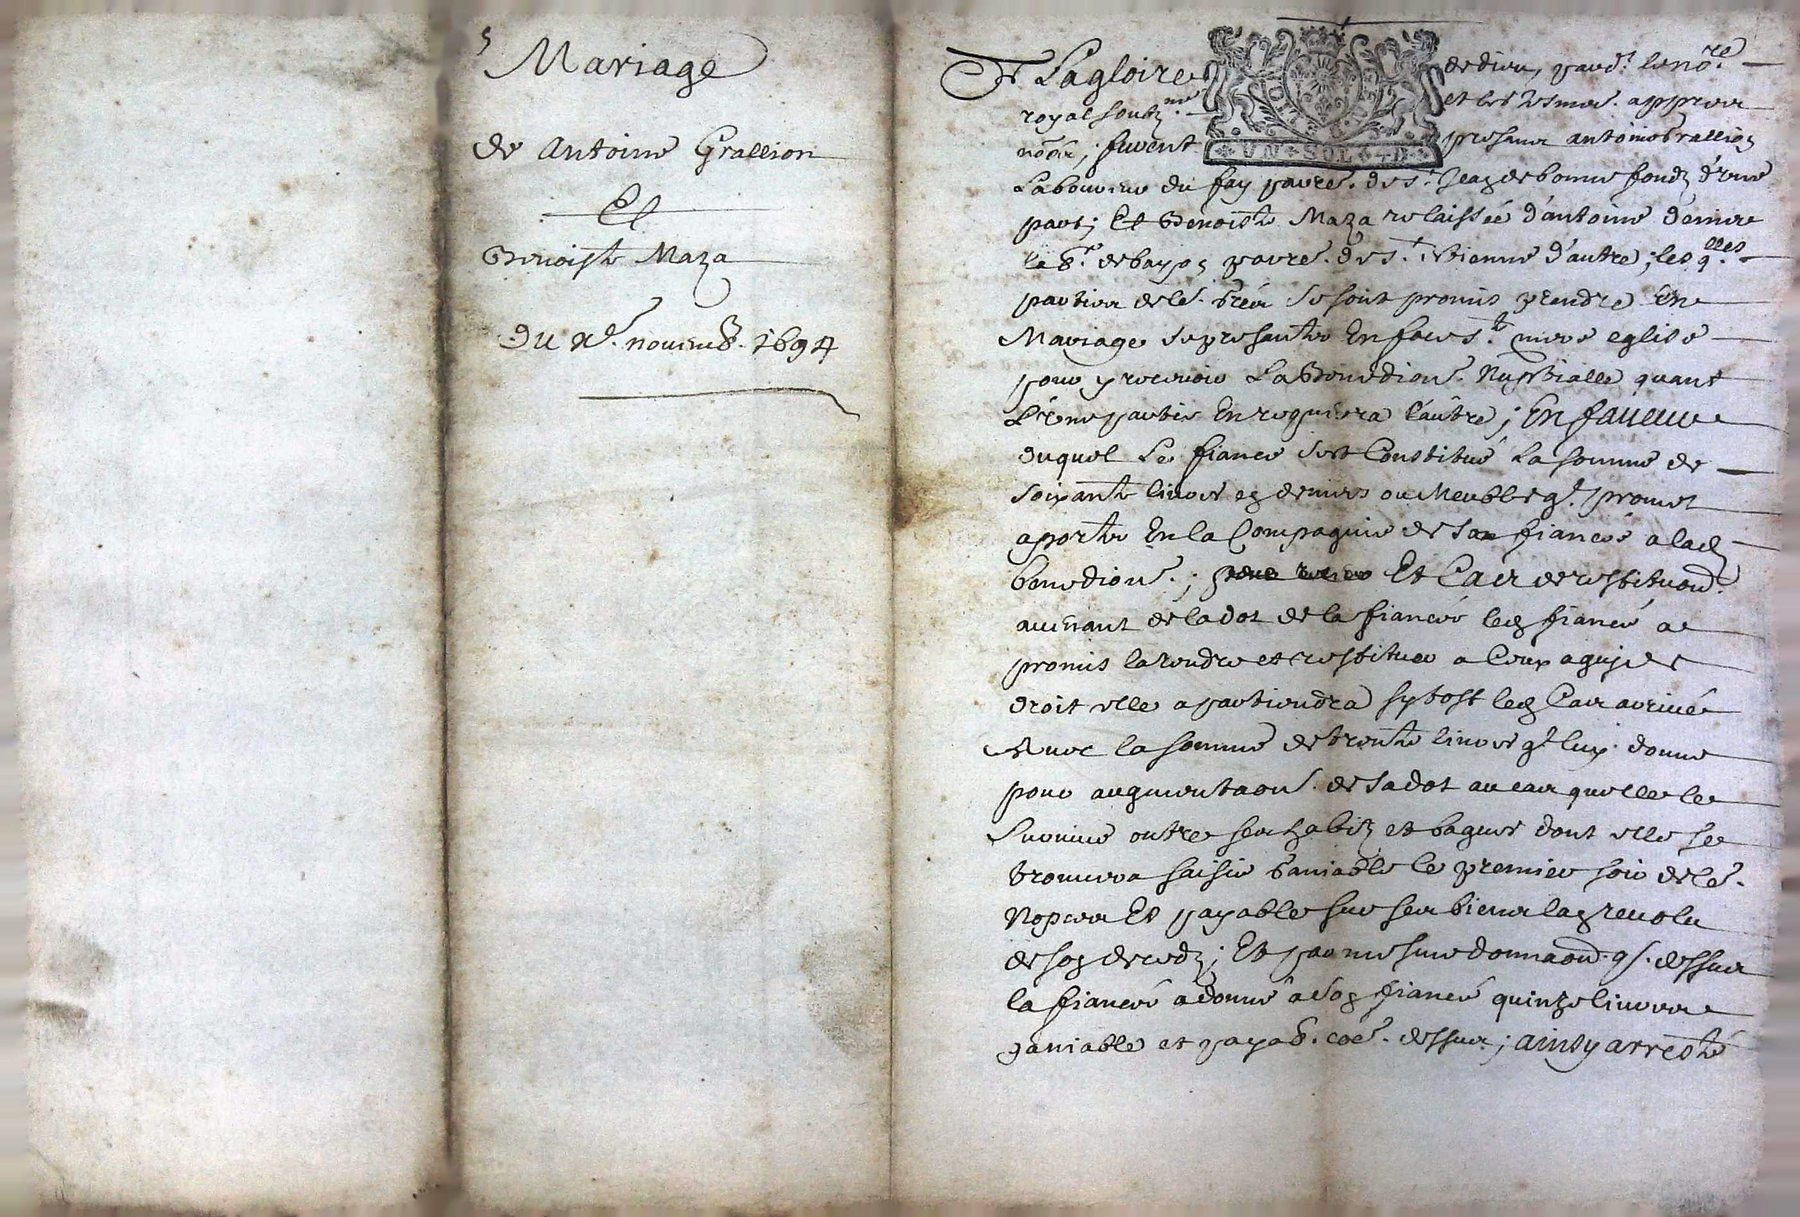 5
Mariage
de Antoine Grallion
Et
Benoiste Maza
Du x.e novem8. 1694
A La gloire de dieu, pard.t le no.re
royal soubz.né et les tesmos. appres
nõés, furent presens antoine Grallion
Laboureur du fay parre. de s.t Jean de bonnefondz d'une
part; Et Benoiste Maza relaissée d'antoine
de s.t Etienne d'autre; lesq.lles
parties de le. gré se sont promis prendre En
Mariage se presanter En face s.te mere eglise
pour y recevoir La Benedion. Nuptialle quant
L'une partie En requerra l'autre; En faueur
duquel Le fiancé s'est Constitué La somme de
soixante liures en deniers ou Meubles q.l promet
aporter En la Compagnie de sa fiancée a lad
benedion.; Et Cas de restituon.
auenant de la dot de la fiancée led fiancé a
promis la rendre et restituer a Ceux a qui de
droit elle apartiendra sytost led Cas arriué
Auec la somme de trente liures q.l luy donne
pour augmentaon. de sa dot au cas quelle le
suruiue outre ses habitz et bagues dont elle se
trouuera saisie ganiable le premier soir de le.
Nopces Et payable sur ses biens lan reuolu
de son decedz; Et par mesme donnaon. q. dessus
la fiancée a donné a son fiancé quinze liures
ganiable et paya8. coe. dessus; ainsy arresté
UN SOL 4 D